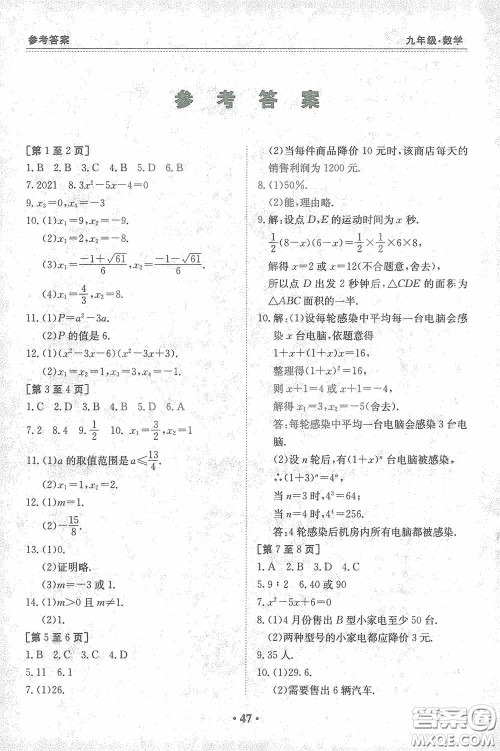 参考答案
九年级·数学
参考答案
[第1至2页]
1. B 2. B 3. C 4. B 5. D 6. A
7. 2021 8. 3x²-5x-4=0
9. x₃=0,x₄=-3
10. (1)x₁=9,x₂=-9.
(2)x₁=1,x₂=-3.
(3)x₁=(-1+√61)/6,x₂=(-1-√61)/6.
(4)x₁=4/3,x₂=-4.
11. (1)P=a²-3a.
(2)P的值是6.
12. (1)(x²-3x-6)(x²-3x)
(2)x₁=0,x₂=3,x₃=1,x₄=2
[第3至4页]
1. C 2. D 3. B 4. B 5. D 6. A
7. 2 8. 4 9. 1/2 10. x₁=3/2,x₂=1
11. (1)a的取值范围是a≤13/4.
12. (1)m=1.
(2)-15/8.
13. (1)0.
(2)证明略.
(3)m=-3或1.
14. (1)m>0且m≠1.
(2)x₁=0,x₂=-2.
[第5至6页]
1. B 2. D 3. A 4. D
5. 11 6. 1
7. (1)26.
(2)当每件商品降价10元时,该商店每天的
销售利润为1200元.
8. (1)50%.
(2)能,理由略.
9. 解:设点D,E的运动时间为x秒.
1/2(8-x)(6-x)=1/2×1/2×6×8,
解得x=2或x=12(不合题意,舍去),
所以点D出发2秒钟后,△CDE的面积为
△ABC面积的一半.
10. 解:(1)设每轮感染中平均每一台电脑会感
染x台电脑,依题意得
1+x+(1+x)x=16,
整理得(1+x)²=16,
则x+1=4或x+1=-4,
解得x₁=3,x₂=-5(舍去).
答:每轮感染中平均一台电脑会感染3台电
脑.
(2)设n轮后,有(1+x)ⁿ台电脑被感染,
∴(1+3)ⁿ=4ⁿ,
当n=3时,4³=64;
当n=4时,4⁴=256.
答:4轮感染后机房内所有电脑都被感染.
[第7至8页]
1. A 2. B 3. D 4. C
5. 9∶2 6. 50或90
7. x²-5x+6=0
8. (1)4月份售出B型小家电至少50台.
(2)两种型号的小家电都应降价3元.
9. 35人.
10. (1)29.6.
(2)需要售出6辆汽车.
·47·
答案圈
MXQE.COM